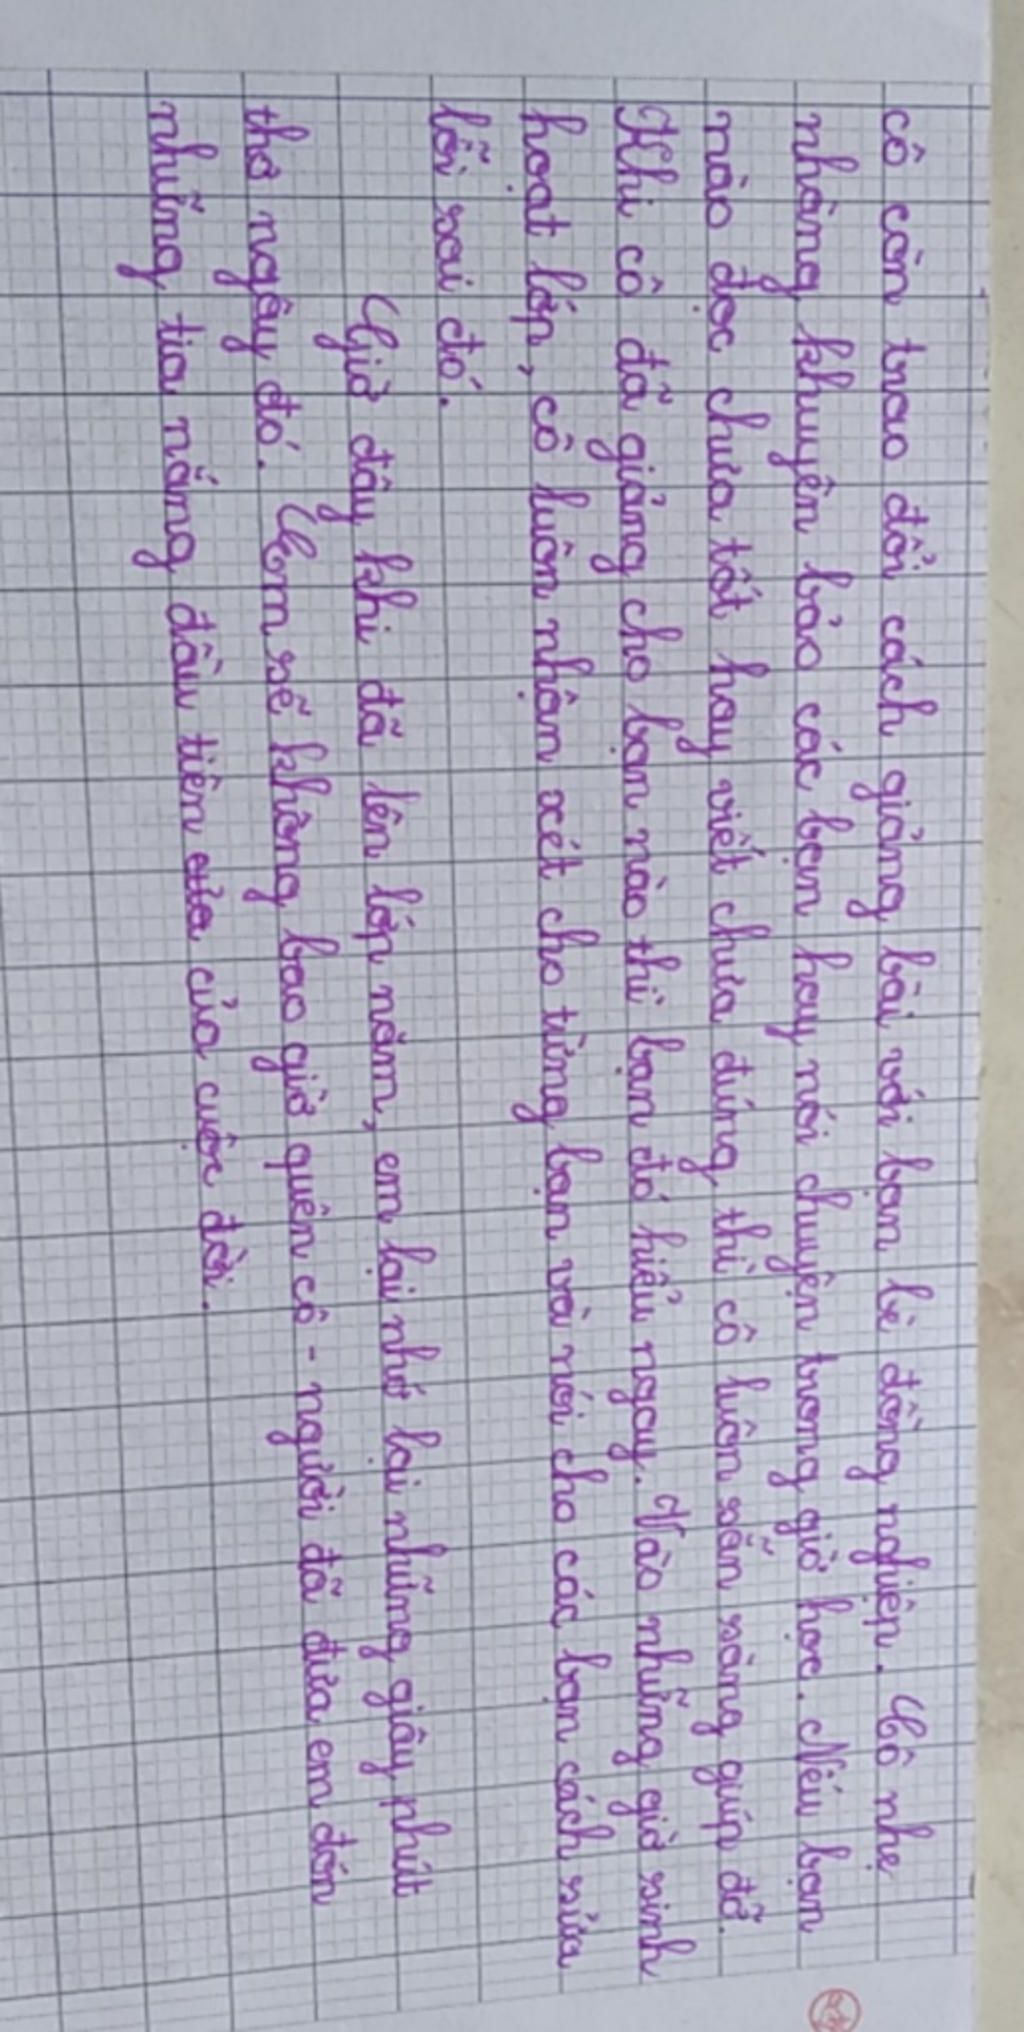 cô còn trao đổi cách giảng bài với bạn bè đồng nghiệp. Cô nhẹ
nhàng khuyên bảo các bạn hay nói chuyện trong giờ học. Nếu bạn
nào đọc chưa tốt hay viết chưa đúng thì cô luôn sẵn sàng giúp đỡ.
Khi cô đã giảng cho bạn nào thì bạn đó hiểu ngay. Vào những giờ sinh
hoạt lớp, cô luôn nhận xét cho từng bạn và nói cho các bạn cách sửa
lỗi sai đó.
Giờ đây khi đã lên lớp năm, em lại nhớ lại những giây phút
thơ ngây đó. Em sẽ không bao giờ quên cô - người đã đưa em đón
những tia nắng đầu tiên của cuộc đời.